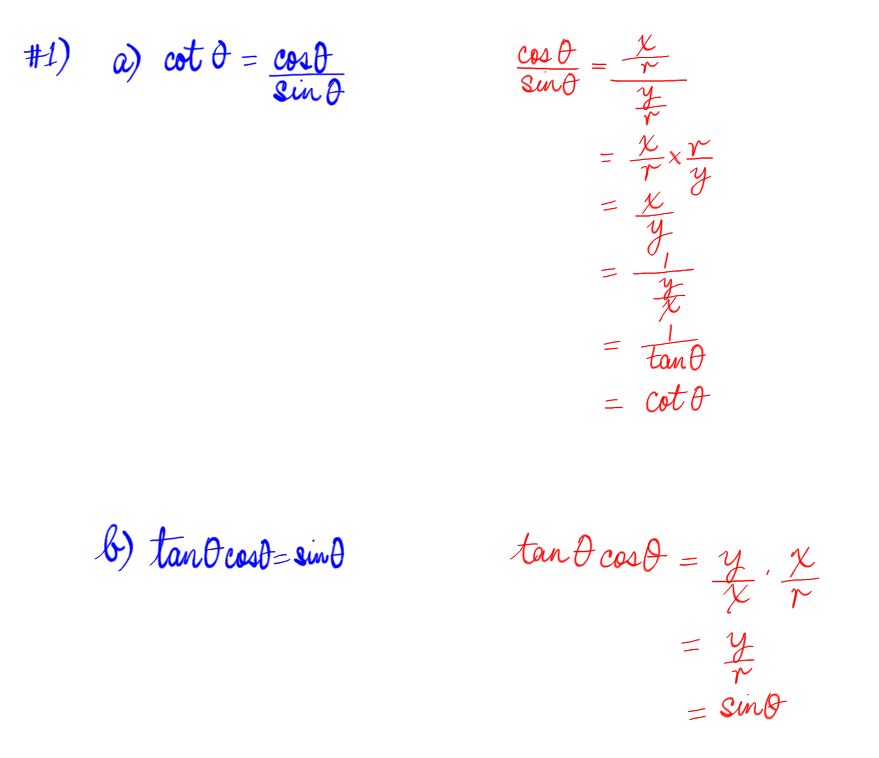 #1) a) cot θ = cosθ/sinθ
cosθ/sinθ = (x/r)/(y/r)
= x/r × r/y
= x/y
= 1/(y/x)
= 1/tanθ
= cotθ
b) tanθcosθ=sinθ
tanθcosθ = y/x · x/r
= y/r
= sinθ